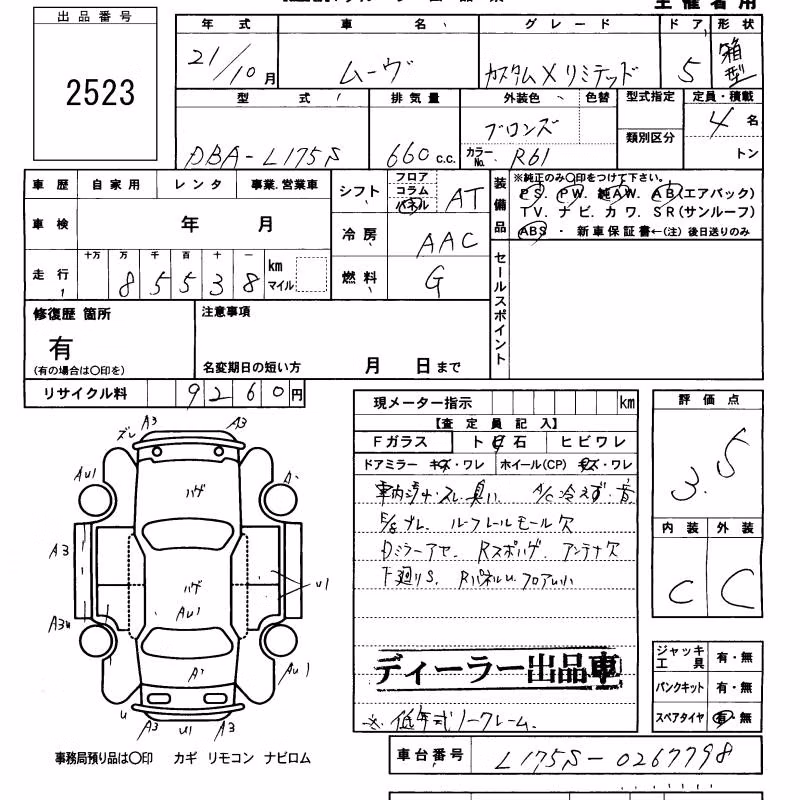 出品番号
2523
年式 車名 グレード ドア 形状
21/10月 ムーヴ カスタムXリミテッド 5 箱型
型式 排気量 外装色 色替 型式指定 定員・積載
DBA-L175S 660 c.c. ブロンズ 類別区分 4名
カラーNo. R61 トン
車歴 自家用 レンタ 事業.営業車
シフト フロア コラム パネル AT
装備品 ※純正のみ〇印をつけて下さい。
PS. PW. 純AW. AB(エアバック)
TV. ナビ. カワ. SR(サンルーフ)
ABS ・ 新車保証書←(注) 後日送りのみ
車検 年 月
冷房 AAC
走行 十万 万 千 百 十 一
85538 km マイル
燃料 G
セールスポイント
修復歴 箇所 注意事項
有
(有の場合は〇印を) 名変期日の短い方 月 日まで
リサイクル料 9260円
現メーター指示 km
評価点
3.5
【査定員記入】
Fガラス ト石 ヒビワレ
ドアミラー キズ・ワレ ホイール(CP) キズ・ワレ
車内 スレ 臭い A/C冷えず・音
E/gブレ. ルーフレールモール欠
Dミラーアセ. Rスポハゲ. アンテナ欠
下廻りS. RパネルU. フロアU小
内装 外装
C C
A3 A3
ズレ
AU1 A-
ハゲ
A3
ハゲ U1
AU1
A3U
A1 AU1
U A3 U1 A3
ディーラー出品車
※低年式ノークレーム.
ジャッキ工具 有・無
パンクキット 有・無
スペアタイヤ 有・無
事務局預り品は〇印 カギ リモコン ナビロム
車台番号 L175S-0267798